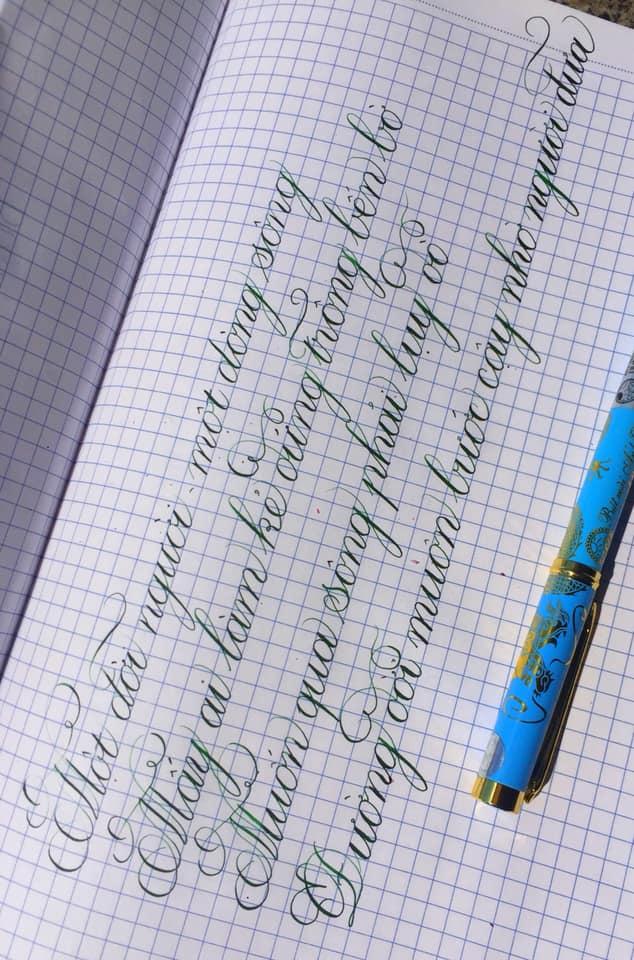 Một đời người - một dòng sông
Mấy ai làm kẻ đứng trông bến bờ
Muốn qua sông phải lụy đò
Đường đời muôn bước cậy nhờ người đưa